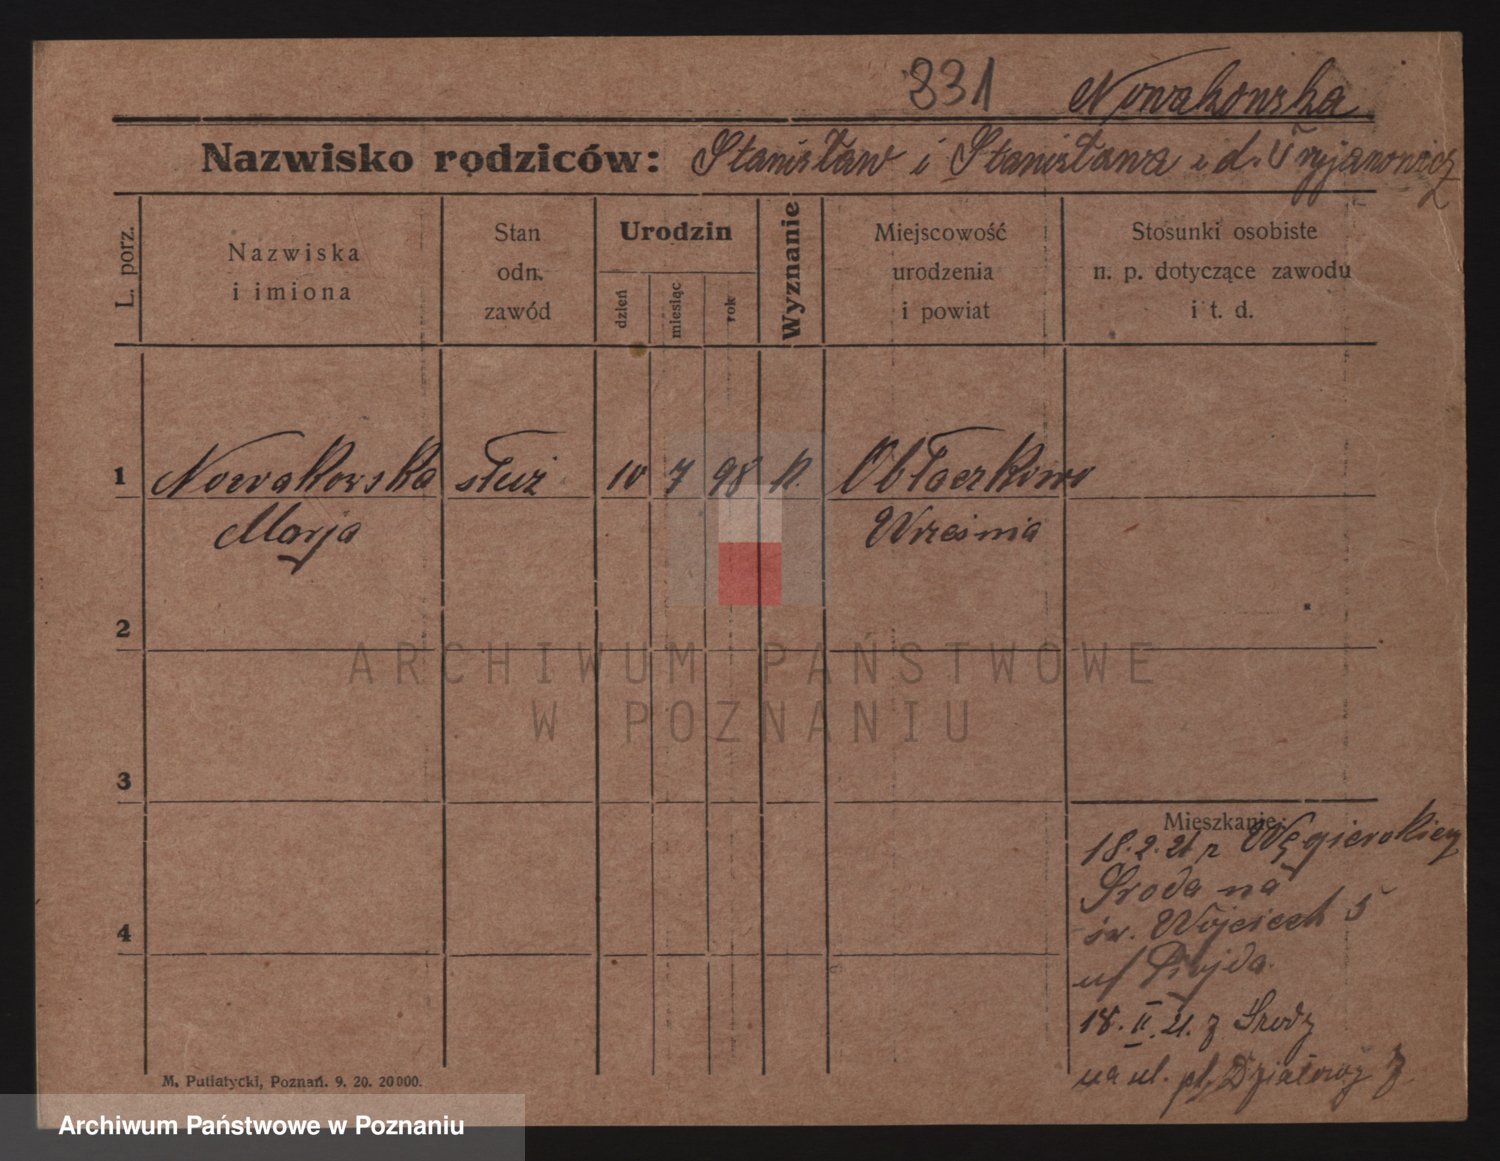 331 Nowakowska
Nazwisko rodziców: Stanisław i Stanisława z d. Tryjanowicz
L. porz.
Nazwiska
i imiona
Stan
odn.
zawód
Urodzin
dzień
miesiąc
rok
Wyznanie
Miejscowość
urodzenia
i powiat
Stosunki osobiste
n. p. dotyczące zawodu
i t. d.
1 Nowakowska służ 10 7 98 k. Obłaczkowo
Marja Września
2
3
4
Mieszkanie:
18.2.21 z
Środa na
św. Wojciech 5
u/
18.II.21. z Środy
na ul. pl. Działowy
M. Putiatycki, Poznań. 9. 20. 20000.
ARCHIWUM PAŃSTWOWE
W POZNANIU
Archiwum Państwowe w Poznaniu